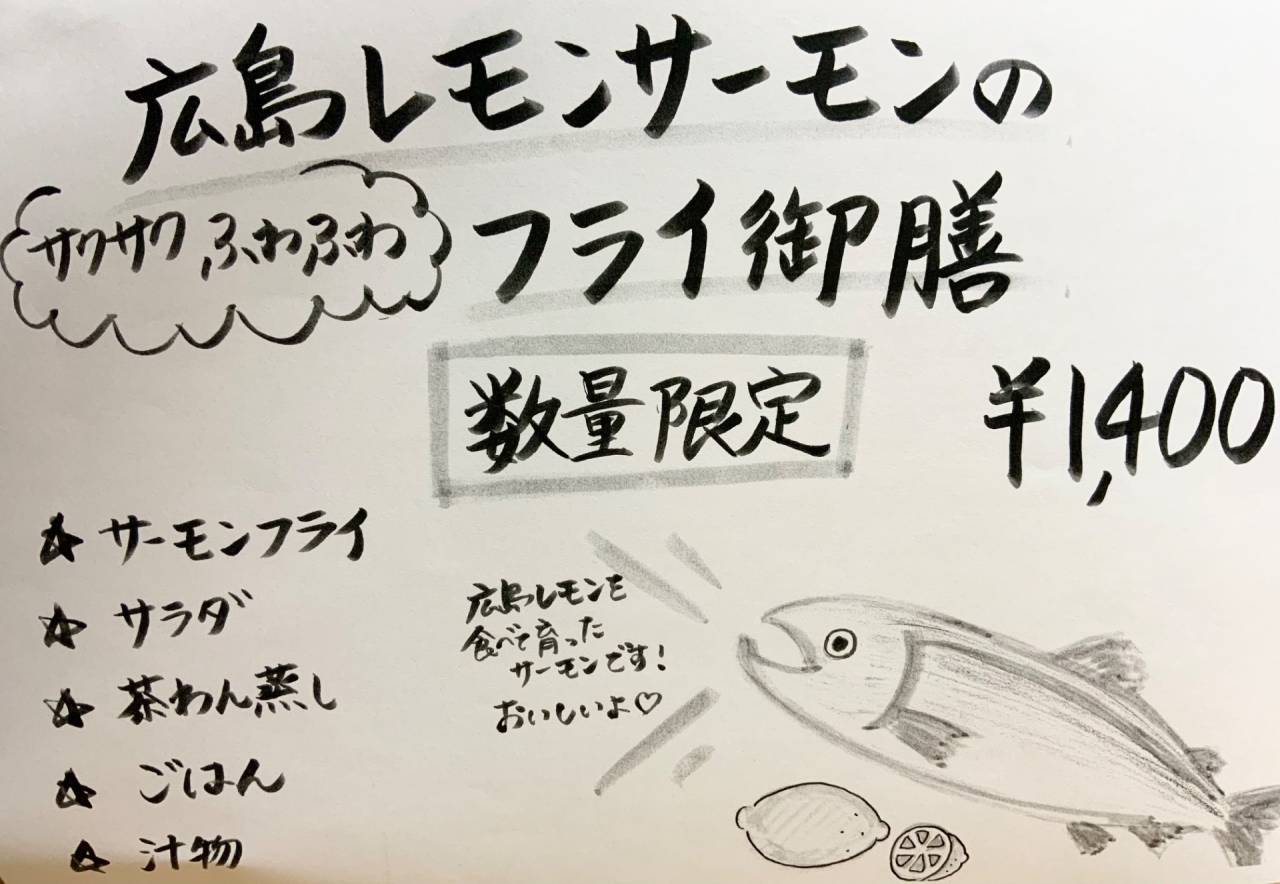 広島レモンサーモンの
サクサク ふわふわ
フライ御膳
数量限定
¥1,400
☆ サーモンフライ
☆ サラダ
☆ 茶わん蒸し
☆ ごはん
☆ 汁物
広島レモンを
食べて育った
サーモンです!
おいしいよ♡